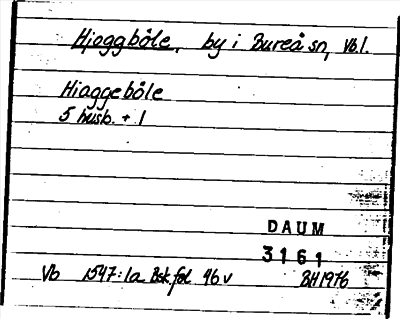 Hjoggböle, by i Bureå sn, Vb.l.
Hiaggeböle
5 husb. + 1
DAUM
3161
Vb 1547:1a Bsk fol 96 v BH 1976